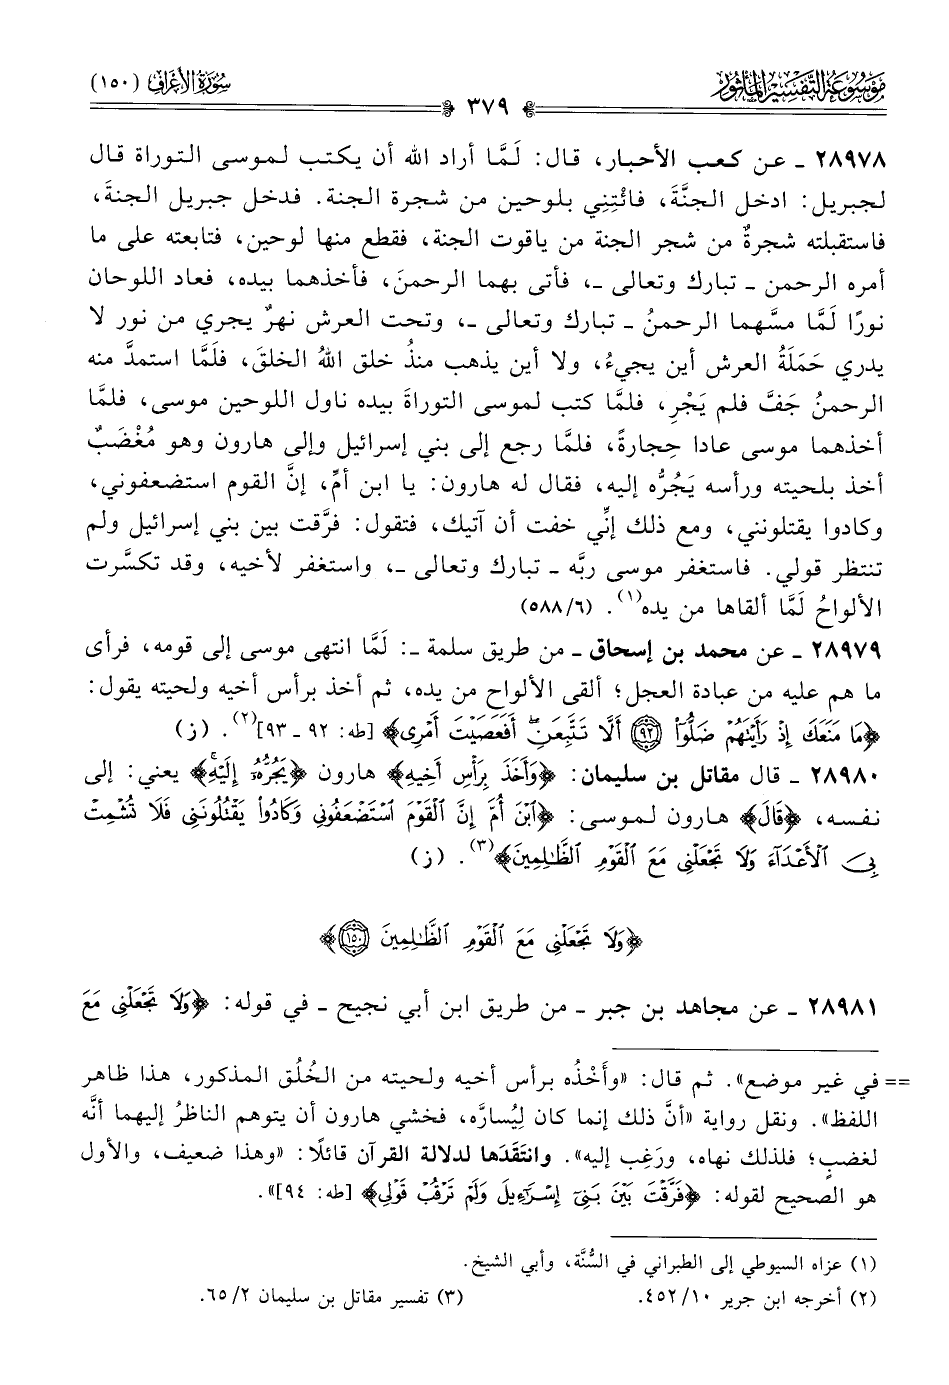 مَوْسُوعَةُ التَّفْسِيرِ المَأْثُور
سُورَةُ الأَعْرَاف (١٥٠)
٣٧٩
٢٨٩٧٨ ـ عن كعب الأحبار، قال: لَمَّا أراد الله أن يكتب لموسى التوراة قال
لجبريل: ادخل الجنَّة، فائْتِنِي بلوحين من شجرة الجنة. فدخل جبريل الجنةَ،
فاستقبلته شجرةٌ من شجر الجنة من ياقوت الجنة، فقطع منها لوحين، فتابعته على ما
أمره الرحمن ـ تبارك وتعالى ـ، فأتى بهما الرحمنَ، فأخذهما بيده، فعاد اللوحان
نورًا لَمَّا مسَّهما الرحمنُ ـ تبارك وتعالى ـ، وتحت العرش نهرٌ يجري من نور لا
يدري حَمَلَةُ العرش أين يجيءُ، ولا أين يذهب منذُ خلق اللهُ الخلقَ، فلَمَّا استمدَّ منه
الرحمنُ جَفَّ فلم يَجْرِ، فلمَّا كتب لموسى التوراةَ بيده ناول اللوحين موسى، فلمَّا
أخذهما موسى عادا حِجارةً، فلمَّا رجع إلى بني إسرائيل وإلى هارون وهو مُغْضَبٌ
أخذ بلحيته ورأسه يَجُرُّه إليه، فقال له هارون: يا ابن أمِّ، إنَّ القوم استضعفوني،
وكادوا يقتلونني، ومع ذلك إنِّي خفت أن آتيك، فتقول: فرَّقت بين بني إسرائيل ولم
تنتظر قولي. فاستغفر موسى ربَّه ـ تبارك وتعالى ـ، واستغفر لأخيه، وقد تكسَّرت
الألواحُ لَمَّا ألقاها من يده(١). (٥٨٨/٦)
٢٨٩٧٩ ـ عن محمد بن إسحاق ـ من طريق سلمة ـ: لَمَّا انتهى موسى إلى قومه، فرأى
ما هم عليه من عبادة العجل؛ ألقى الألواح من يده، ثم أخذ برأس أخيه ولحيته يقول:
﴿مَا مَنَعَكَ إِذْ رَأَيْتَهُمْ ضَلُّوٓا۟ ٩٢ أَلَّا تَتَّبِعَنِ ۖ أَفَعَصَيْتَ أَمْرِى﴾ [طه: ٩٢ ـ ٩٣](٢). (ز)
٢٨٩٨٠ ـ قال مقاتل بن سليمان: ﴿وَأَخَذَ بِرَأْسِ أَخِيهِ﴾ هارون ﴿يَجُرُّهُۥٓ إِلَيْهِ ۚ﴾ يعني: إلى
نفسه، ﴿قَالَ﴾ هارون لموسى: ﴿ٱبْنَ أُمَّ إِنَّ ٱلْقَوْمَ ٱسْتَضْعَفُونِى وَكَادُوا۟ يَقْتُلُونَنِى فَلَا تُشْمِتْ
بِىَ ٱلْأَعْدَآءَ وَلَا تَجْعَلْنِى مَعَ ٱلْقَوْمِ ٱلظَّـٰلِمِينَ﴾(٣). (ز)
﴿وَلَا تَجْعَلْنِى مَعَ ٱلْقَوْمِ ٱلظَّـٰلِمِينَ ١٥٠﴾
٢٨٩٨١ ـ عن مجاهد بن جبر ـ من طريق ابن أبي نجيح ـ في قوله: ﴿وَلَا تَجْعَلْنِى مَعَ
== في غير موضع». ثم قال: «وأَخْذُه برأس أخيه ولحيته من الخُلُق المذكور، هذا ظاهر
اللفظ». ونقل رواية «أنَّ ذلك إنما كان لِيُسارَّه، فخشي هارون أن يتوهم الناظرُ إليهما أنَّه
لغضبٍ؛ فلذلك نهاه، ورَغِب إليه». وانتَقَدَها لدلالة القرآن قائلًا: «وهذا ضعيف، والأول
هو الصحيح لقوله: ﴿فَرَّقْتَ بَيْنَ بَنِىٓ إِسْرَٰٓءِيلَ وَلَمْ تَرْقُبْ قَوْلِى﴾ [طه: ٩٤]».
(١) عزاه السيوطي إلى الطبراني في السُّنَّة، وأبي الشيخ.
(٢) أخرجه ابن جرير ١٠/ ٤٥٢.
(٣) تفسير مقاتل بن سليمان ٢/ ٦٥.